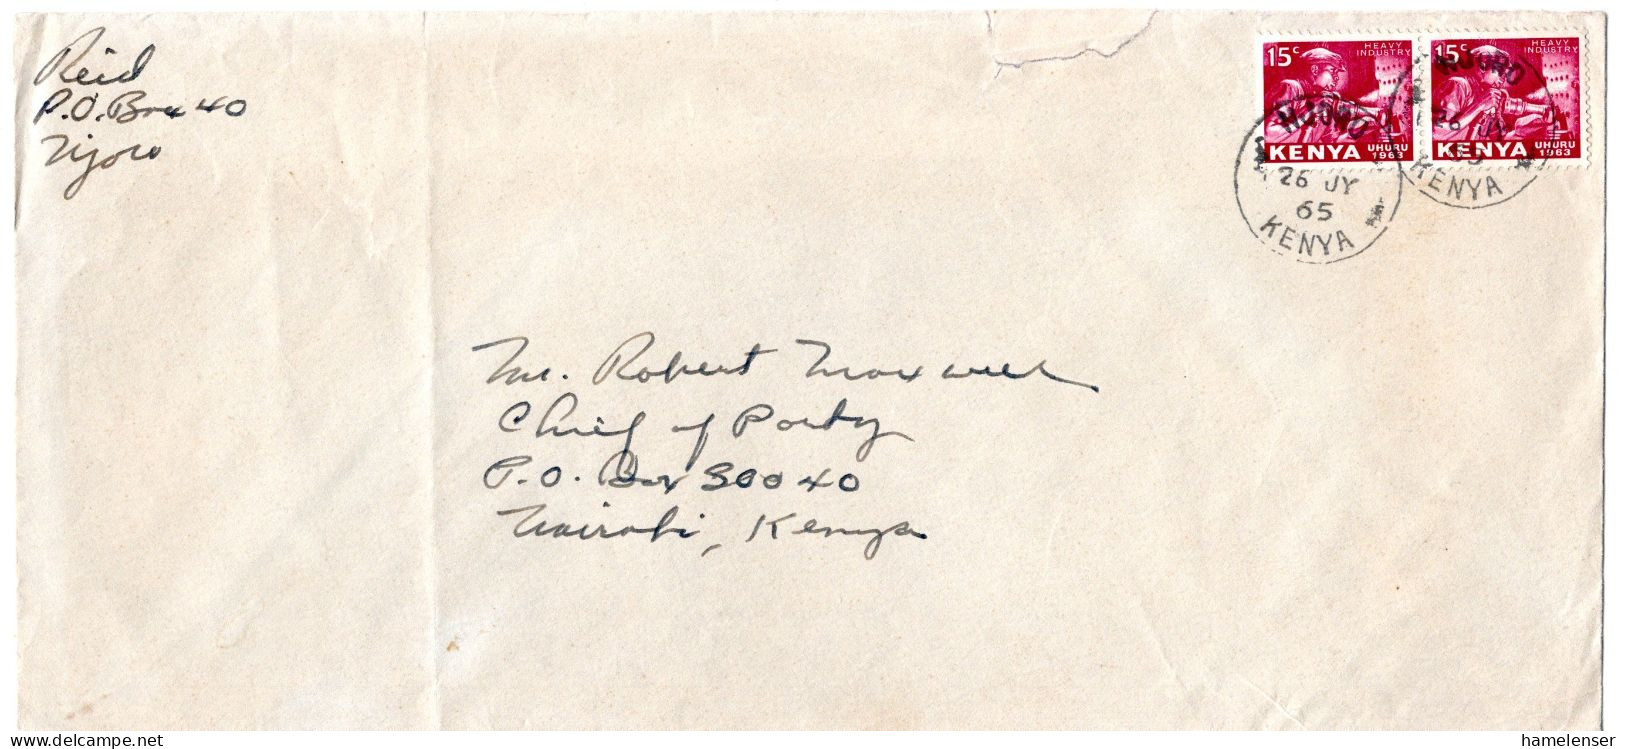 Reid
P.O. Box 40
Njoro
15c
HEAVY
INDUSTRY
KENYA
UHURU
1963
15c
HEAVY
INDUSTRY
KENYA
UHURU
1963
NJORO
26 JY
65
KENYA
NJORO
26 JY
65
KENYA
Mr. Robert Maxwell
Chief of Party
P.O. Box 30040
Nairobi, Kenya
www.delcampe.net
hamelenser